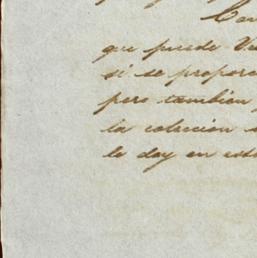 que puede V
si se propor
pero tambien
la coleccion
le doy en est